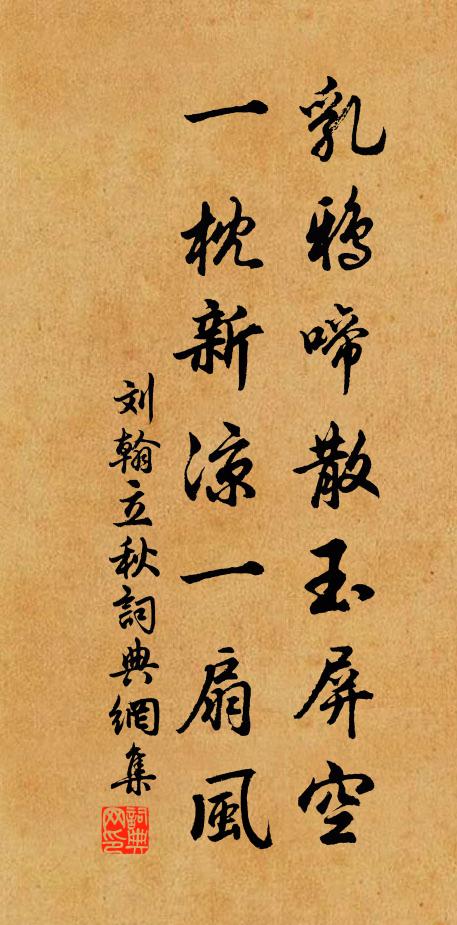 乳鴉啼散玉屏空
一枕新凉一扇風
刘翰立秋詞典網集
詞典网印